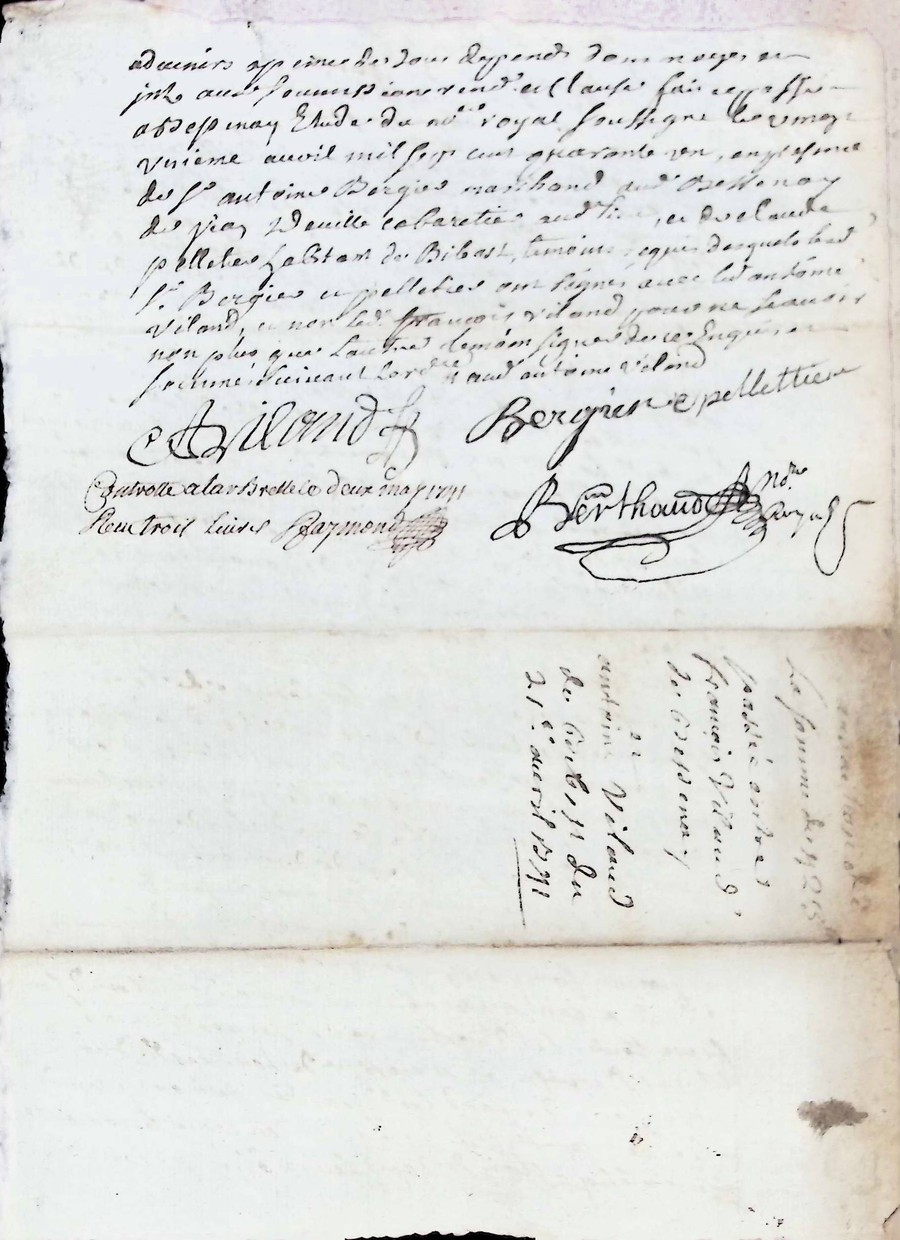 advenirs a peine de tous depends dommages et
jnts avec soumissions renon. et clauses fait et passé
a Bessenay Etude du nore royal soussigné le vingt
unième avril mil sept cent quarante un, en presence
de Sr antoine Bergier marchand aud. Bessenay
de jean cabaretier aud. lieu, et de claude
pelletier habitant de Bibost, temoins requis desquels led.
Sr. Bergier et pelletier ont signés avec led. antoine
Vilaud, et non led. françois Vilaud pour ne sçavoir
non plus que l'autre temoin signer de ce Enquis et
sommé suivant l'ordce aud. antoine Vilaud
A Vilaud Bergier C pelletier
Controllé a la Bresle le deux may 1741
Reçu trois livres Raymond
Berthaud Nore Royal
La somme de
passée entre
francois Vilaud,
de Bessenay
et
antoine Vilaud
de Bibost du
21e. avril 1741